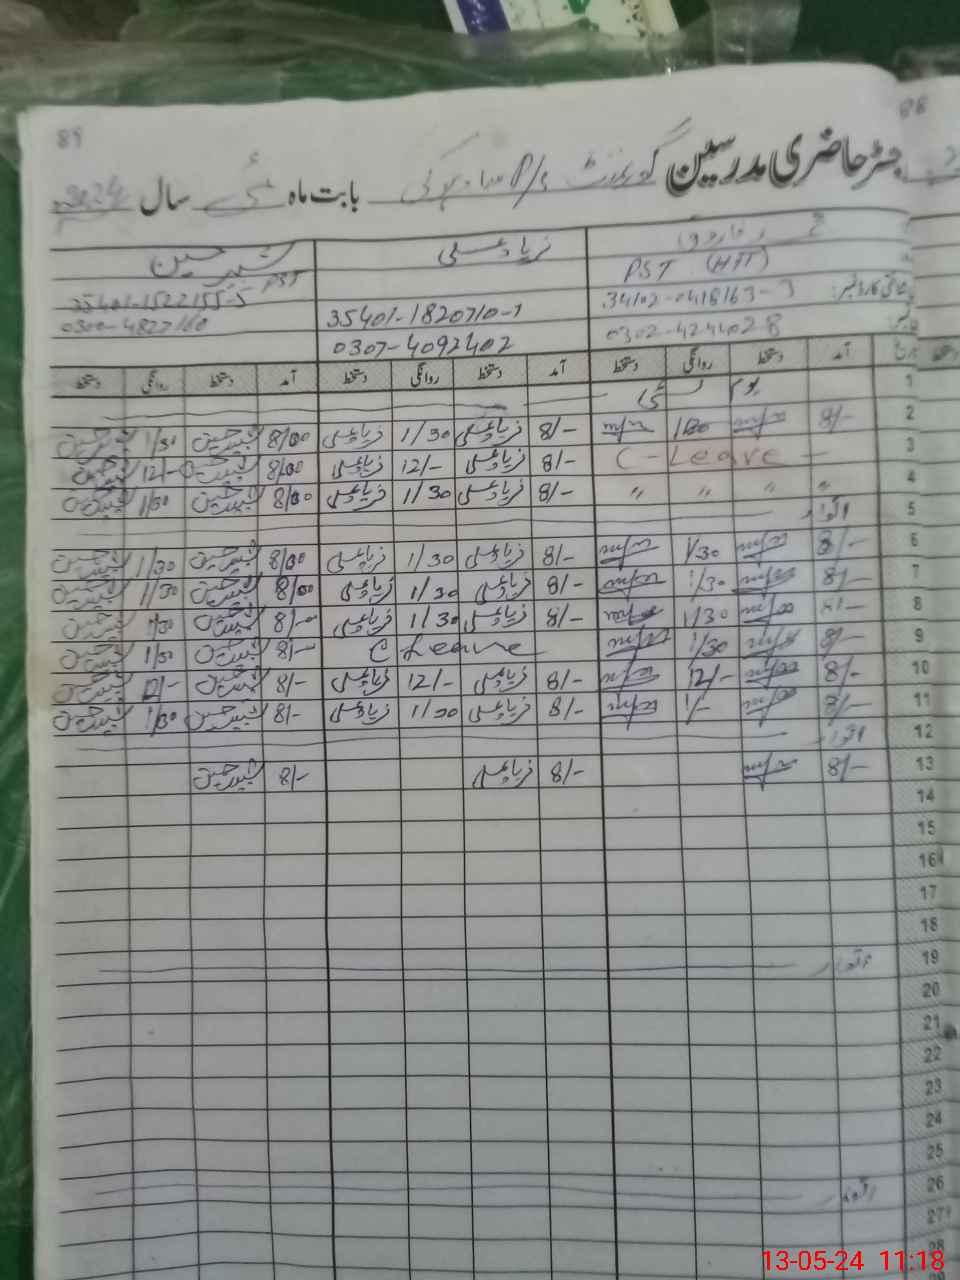 89
88
رجسٹر حاضری مدرسین گورنمنٹ P/S بابت ماہ مئی سال 2024ء
شبیر حسین
PST
35401-1522155-5
0300-4827160
زیاد علی
35401-1820710-7
0307-4092402
PST (HTT)
34102-0418163-3
0302-4244028
دستخط روانگی دستخط آمد دستخط روانگی دستخط آمد دستخط روانگی دستخط آمد تاریخ
1 یوم مئی
2 8/- 1/30 8/- زیاد علی 1/30 زیاد علی 8/00 شبیر حسین 1/30 شبیر حسین
3 C-Leave 8/- زیاد علی 12/- زیاد علی 8/00 شبیر حسین 12/- شبیر حسین
4 " " " " 8/- زیاد علی 1/30 زیاد علی 8/00 شبیر حسین 1/30 شبیر حسین
5 اتوار
6 8/- 1/30 8/- زیاد علی 1/30 زیاد علی 8/00 شبیر حسین 1/30 شبیر حسین
7 8/- 1/30 8/- زیاد علی 1/30 زیاد علی 8/00 شبیر حسین 1/30 شبیر حسین
8 8/- 1/30 8/- زیاد علی 1/30 زیاد علی 8/- شبیر حسین 1/30 شبیر حسین
9 8/- 1/30 C Leave 8/- شبیر حسین 1/30 شبیر حسین
10 8/- 12/- 8/- زیاد علی 12/- زیاد علی 8/- شبیر حسین 12/- شبیر حسین
11 8/- 1/- 8/- زیاد علی 1/30 زیاد علی 8/- شبیر حسین 1/30 شبیر حسین
12 اتوار
13 8/- 8/- زیاد علی 8/- شبیر حسین
14
15
16
17
18
19 اتوار
20
21
22
23
24
25
26 اتوار
27
28
13-05-24 11:18